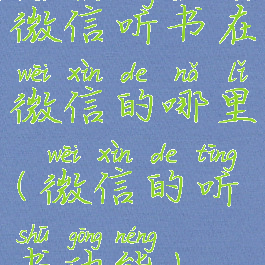 微信听书在
wēi xìn de nǎ lǐ
微信的哪里
wēi xìn de tīng
(微信的听
shū gōng néng
书功能)